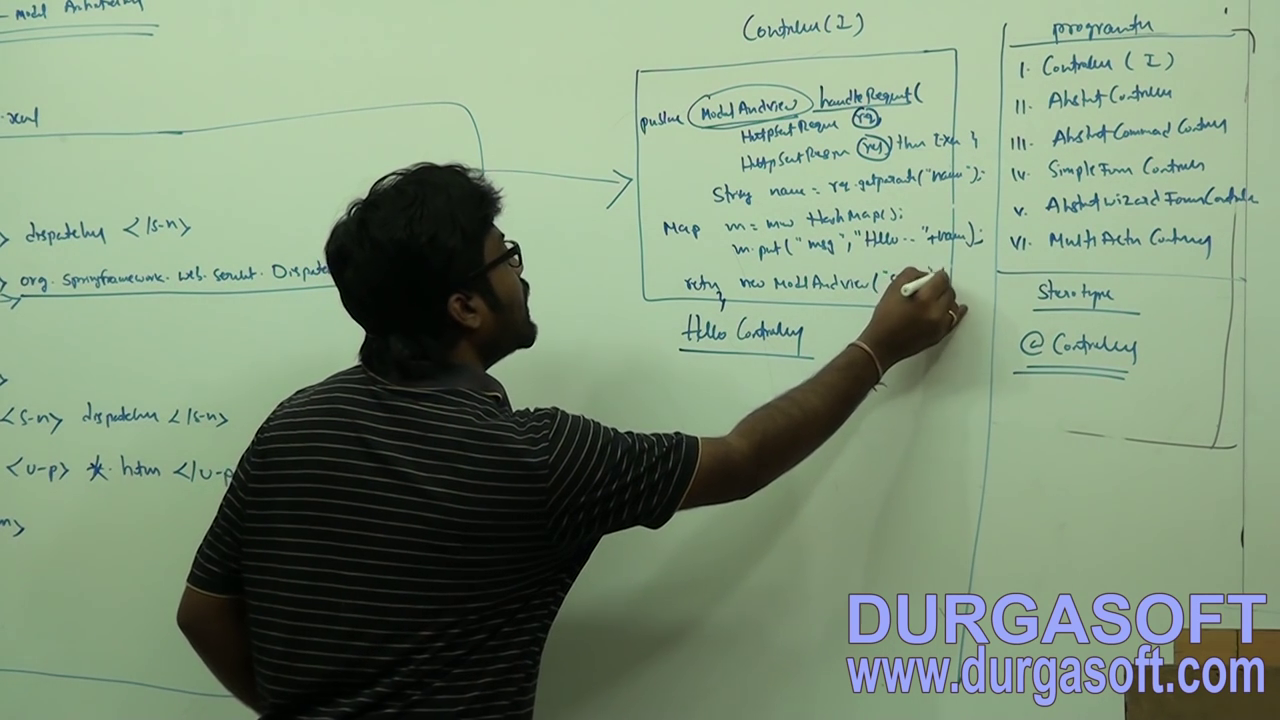 - Model
.xml
> dispatcher </s-n>
> org.springframework.web.servlet.Dispatc
<s-n> dispatcher </s-n>
<u-p> *.htm </u-p
n>
Controller (I)
public ModelAndView handleRequest(
HttpServ Reque req,
HttpServ Respn res) thro Exce {
String name = req.getparamete("name");
Map m = new HashMap();
m.put("msg", "Hello.. "+name);
return new ModelAndView("s
}
Hello Controller
programatic
I. Controller (I)
II. Abstract Controller
III. Abstract Command Controller
IV. Simple Form Controller
V. Abstract Wizard Form Controller
VI. Multi Action Controller
Sterotype
@ Controller
DURGASOFT
www.durgasoft.com